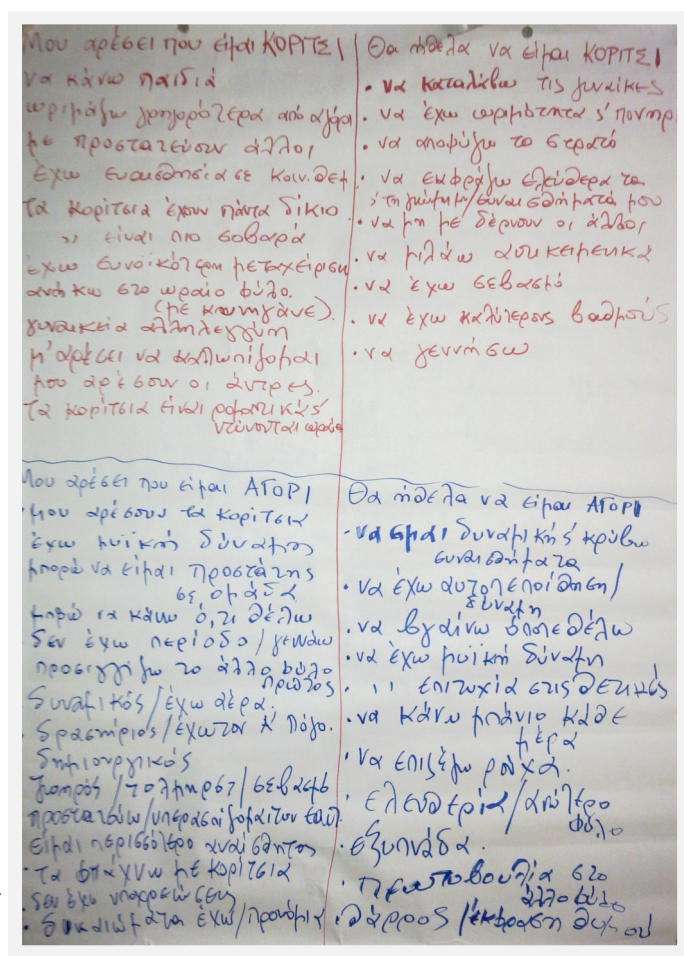 Μου αρέσει που είμαι ΚΟΡΙΤΣΙ
να κάνω παιδιά
ωριμάζω γρηγορότερα από αγόρι
με προστατεύουν άλλοι
έχω ευαισθησία σε κοιν. θεμ.
Τα κορίτσια έχουν πάντα δίκιο
,, είναι πιο σοβαρά
έχω ευνοϊκότερη μεταχείριση
ανήκω στο ωραίο φύλο.
(με κυνηγάνε).
γυναικεία αλληλεγγύη
μ' αρέσει να καλλωπίζομαι
μου αρέσουν οι άντρες.
Τα κορίτσια είναι ρομαντικά ς'
ντύνονται ωραία
Θα ήθελα να είμαι ΚΟΡΙΤΣΙ
• να καταλάβω τις γυναίκες
• να έχω ωριμότητα ς' πονηρ
• να αποφύγω το στρατό
• να εκφράζω ελεύθερα τα
ς' τη γνώμη μ/συναισθήματά μου
• να μη με δέρνουν οι άλλοι
• να μιλάω αντικειμενικά
• να έχω σεβασμό
• να έχω καλύτερους βαθμούς
• να γεννήσω
Μου αρέσει που είμαι ΑΓΟΡΙ
• μου αρέσουν τα κορίτσια
έχω μυϊκή δύναμη
μπορώ να είμαι προστάτης
σε ομάδα
μπορώ να κάνω ό,τι θέλω
δεν έχω περίοδο/γεννάω
προσεγγίζω το άλλο φύλο
πρώτος
δυναμικός/έχω αέρα.
• δραστήριος/έχω τον α' λόγο.
δημιουργικός
/τολμηρός/σεβασμό
προστατεύω/υπερασπίζομαι τον εαυτ.
είμαι περισσότερο αναίσθητος
• τα φτιάχνω με κορίτσια
• δεν έχω υποχρεώσεις
• δικαιώματα έχω/προνόμια
Θα ήθελα να είμαι ΑΓΟΡΙ
- να είμαι δυναμική ς' κρύβω
συναισθήματα
• να έχω αυτοπεποίθηση/
δύναμη
• να βγαίνω όποτε θέλω
• να έχω μυϊκή δύναμη
• ,, επιτυχία στις θετικές
• να κάνω μπάνιο κάθε
μέρα
• να επιλέγω ρούχα.
• ελευθερία/ανώτερο
φύλο
• εξυπνάδα.
• πρωτοβουλία στο
άλλο φύλο
• θάρρος/έκφραση θυμού